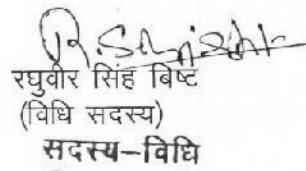 रघुवीर सिंह बिष्ट
(विधि सदस्य)
सदस्य–विधि